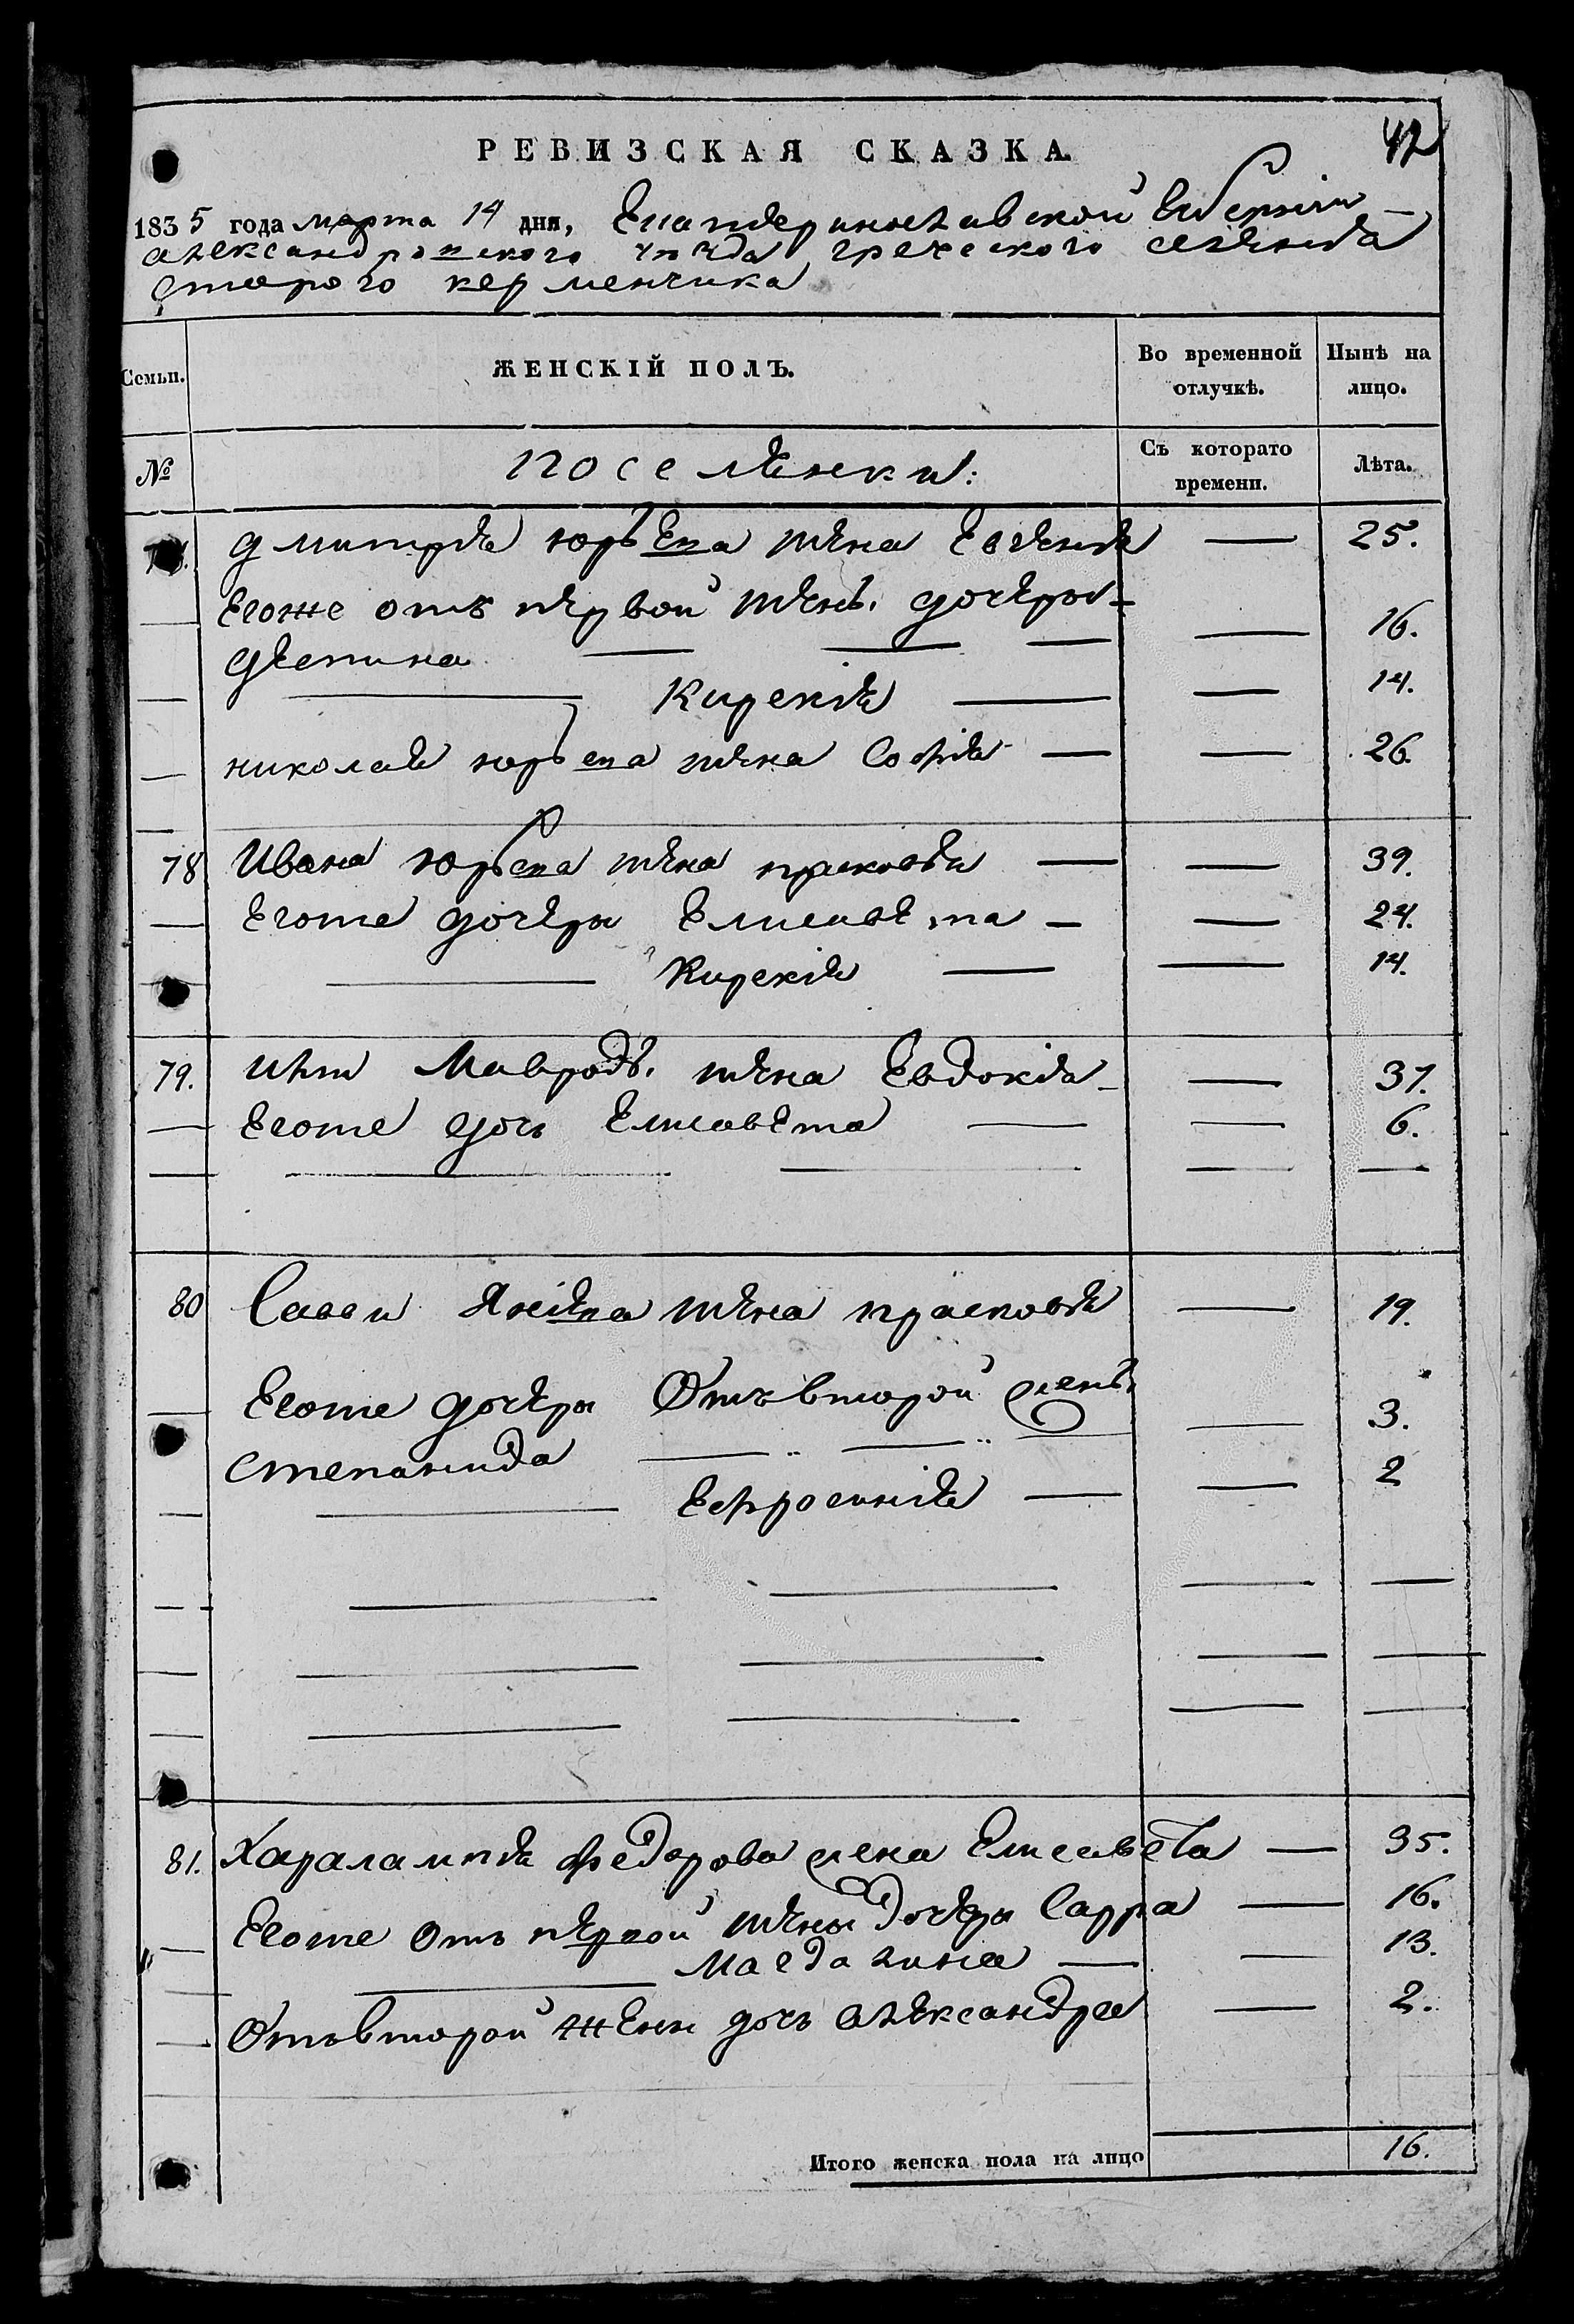 42
РЕВИЗСКАЯ СКАЗКА.
1835 года марта 14 дня, Екатеринославской Губернiи
александровского уѣзда греческого селения
старого керменчика
Семьи. ЖЕНСКІЙ ПОЛЪ. Во временной отлучкѣ. Нынѣ на лицо.
№ поселянки: Съ котораго времени. Лѣта.
дмитрия юрьева жена Евгения — 25.
Егоже отъ первой жены дочери
— — — — 16.
— Кирекия — — 14.
— николая юрьева жена София — — 26.
78 Ивана юрьева жена прасковия — — 39.
— Егоже дочери Елисавета — — 24.
— Кирекiя — — 14.
79. Мавроди жена Евдокiя — — 37.
— Егоже дочь Елисавета — — 6.
— — — — —
80 Саввы жена прасковия — 19.
— Егоже дочери Отъ второй жены
степанида — — — — 3.
— — Ефросинiя — — 2
— — — — —
— — — — —
— — — — —
81. Харалампия федорова жена Елисавета — — 35.
— Егоже отъ первой жены дочери Сарра — 16.
— — Магдалина — — 13.
— Отъ второй жены дочь александра — 2.
Итого женска пола на лицо 16.